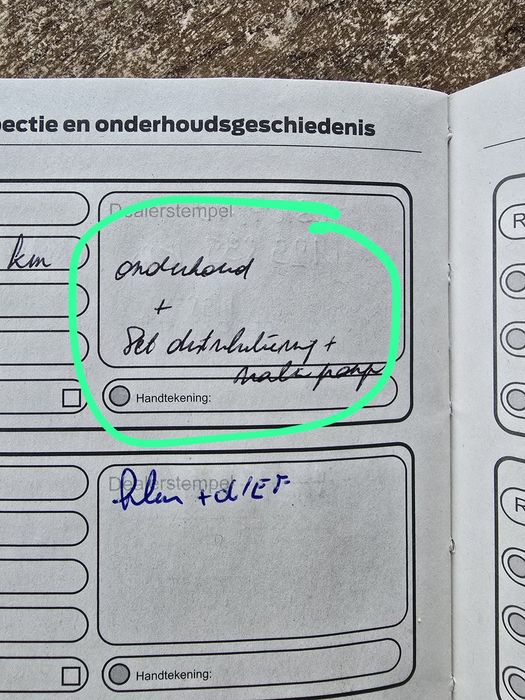 ectie en onderhoudsgeschiedenis
Dealerstempel
km
onderhoud
+
Set distributieriem +
waterpomp
Handtekening:
R
Dealerstempel
+d/EF
Handtekening:
R